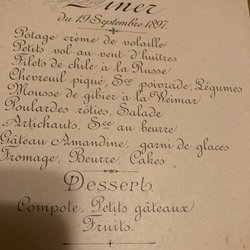 Dîner
du 19 Septembre 1897.
Potage crème de volaille
Petits vol au vent d'huîtres
Filets de chile à la Russe
Chevreuil piqué, Sce poivrade, Légumes
Mousse de gibier à la Weimar
Poulardes rôties, Salade
Artichauts, Sce au beurre
Gâteau Amandine, garni de glaces
Fromage, Beurre, Cakes
Dessert
Compote, Petits gâteaux
Fruits.